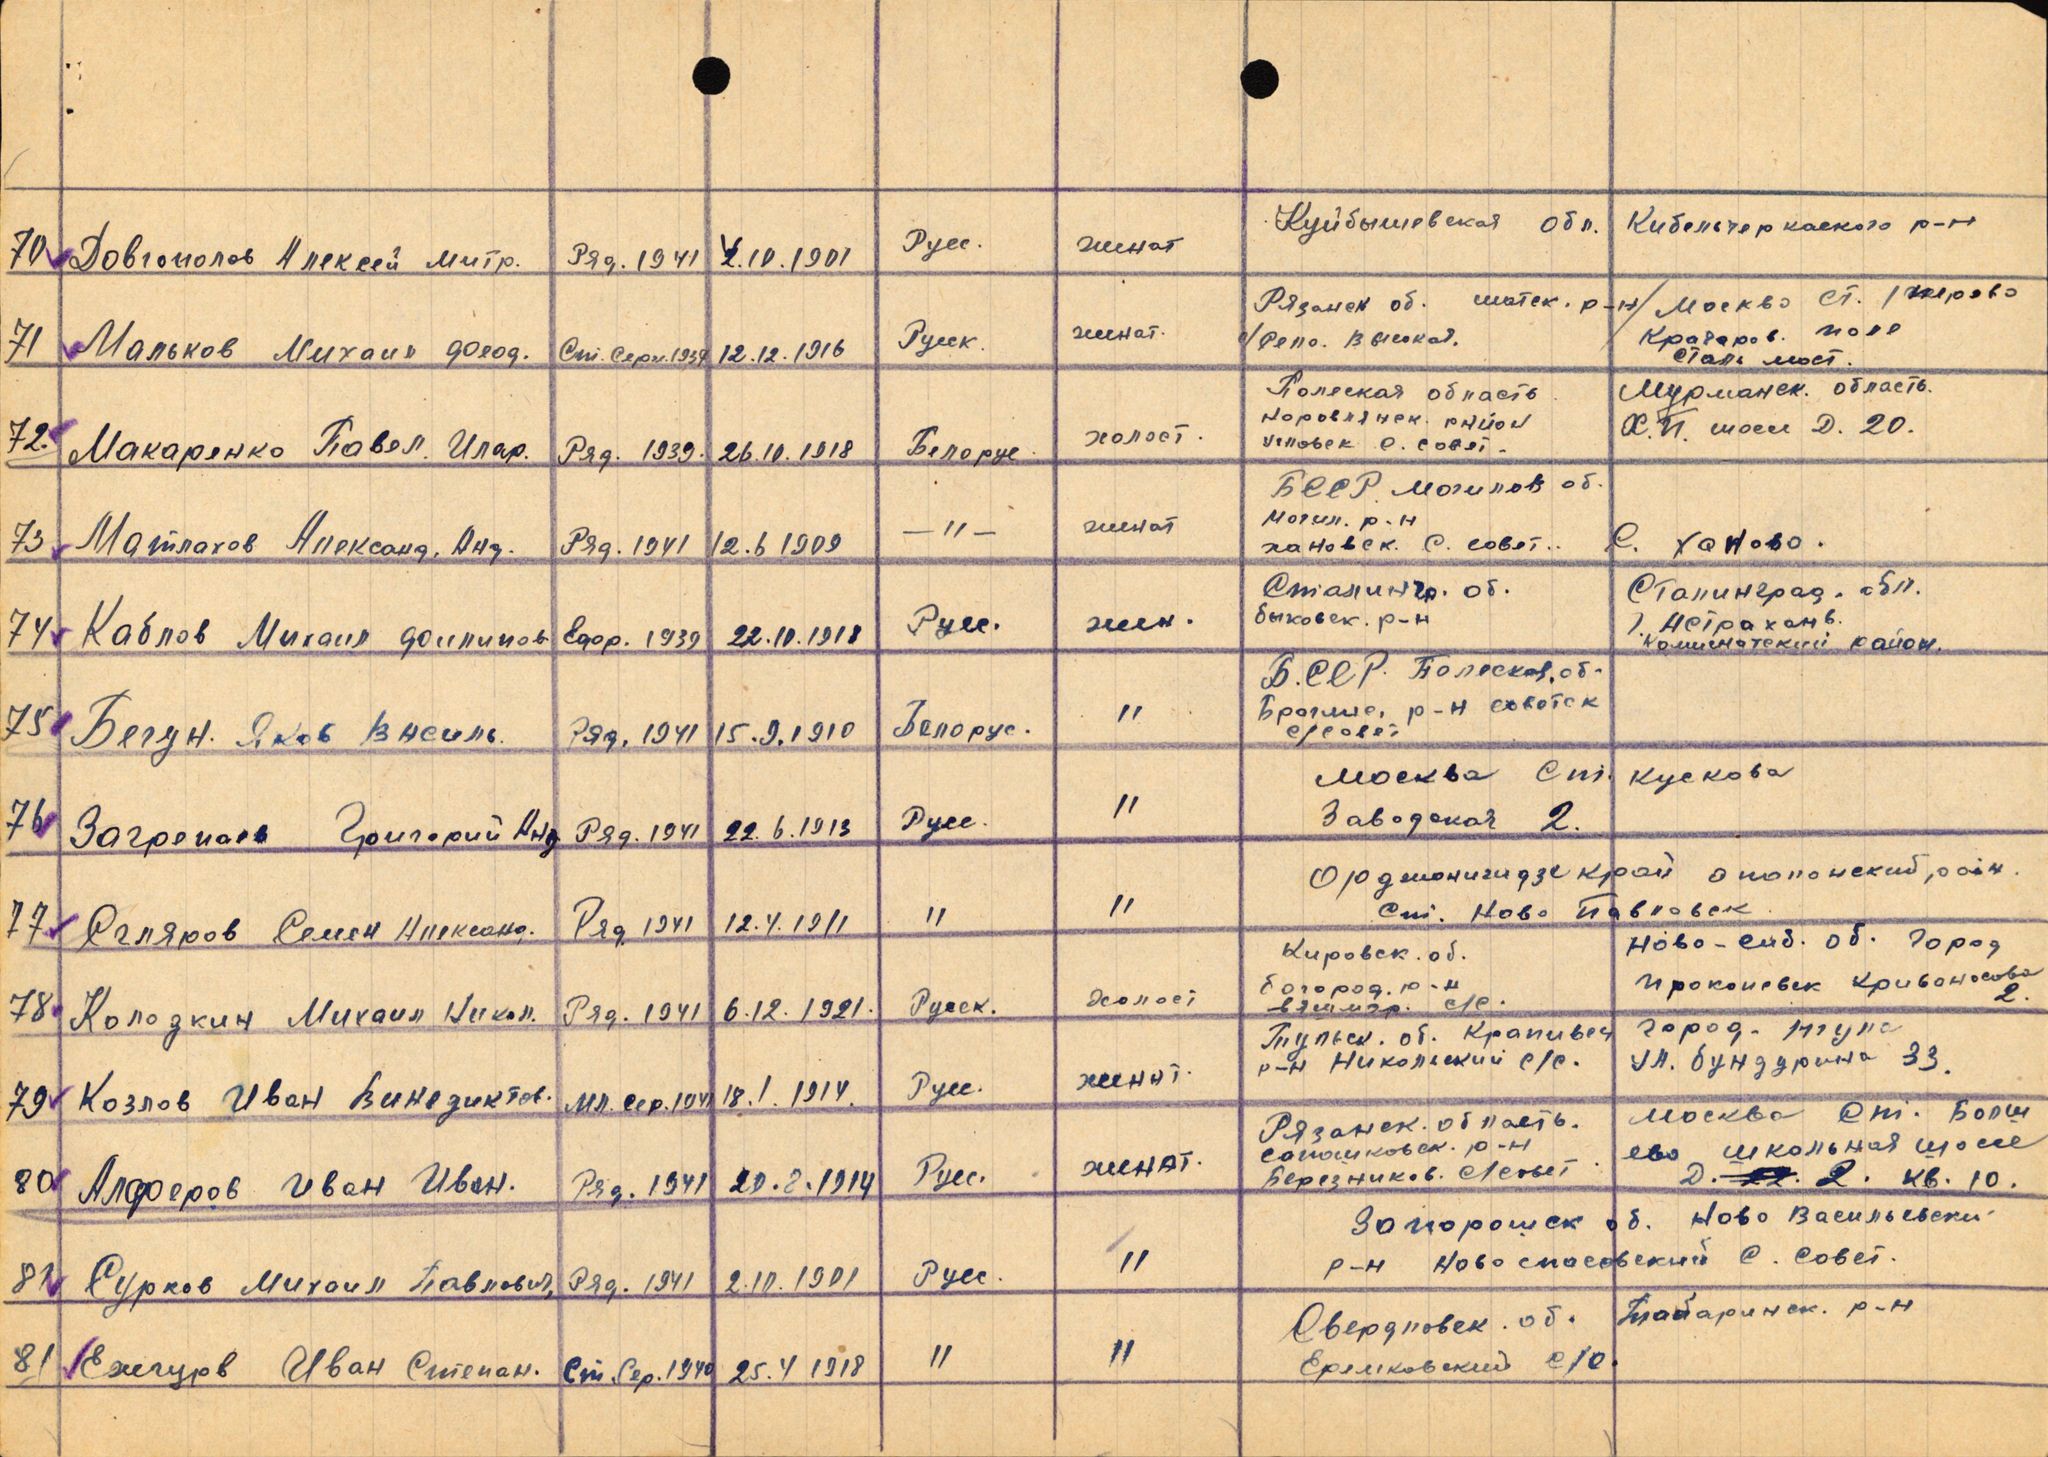 70 Довгополов Алексей Митр. Ряд. 1941 2.10.1901 Русс. женат Куйбышевская Обл. Кибельчеркаского р-н
71 Мальков Михаил Феод. Ст. Серж. 1939 12.12.1916 Русск. женат. Рязанск об. шатск. р-н / Москва ст.
с/Репо. Высокая. Крачаров. поле
Сталь мост.
72. Макаренко Павел. Илар. Ряд. 1939. 26.10.1918 Белорус холост. Полеская область Мурманск. область.
Наровлянск. район Х.П. шосе Д. 20.
С. совет.
73 Матлахов Александ. Анд. Ряд. 1941 12.6 1909 —"— женат БССР. Могилов об.
Могил. р-н
хановск. С. совет.. С. Ханово.
74 Каблов Михаил Филипов Ефр. 1939 22.10.1918 Русс. жен. Сталингр. об. Сталинград. обл.
быковск. р-н г. Астраханв.
район.
75 Бегун. Яков Василь. Ряд. 1941 15.9.1910 Белорус. " Б.ССР. Полесков. об.
Брагинс. р-н советск
с/совет
76 Загрепаев Григорий Анд Ряд. 1941 22.6.1913 Русс. " Москва Ст. кускова
Заводская 2.
77 Скляров Семен Александ. Ряд. 1941 12.4.1911 " " Орджоникидзе край апапонский район.
Ст. Ново Павловск
78 Колодкин Михаил Никол. Ряд. 1941 6.12.1921. Русск. холост Кировск. об. Ново-сиб. об. город
богород. р-н прокопевск Кривоносова
с/с. 2.
79 Козлов Иван Винедиктов. Мл. сер. 1941 18.1.1914. Русс. женат. Тульск. об. Крапивен город.
р-н Никольский с/с. ул. бундурина 33.
80 Алферов Иван Иван. Ряд. 1941 20.2.1914 Русс. женат. Рязанск. область. Москва Ст. Болш
сапошковск. р-н ево школьная шосе
Березников. с/совет Д. 22. 2. кв. 10.
81 Сурков Михаил Павлович, Ряд. 1941 2.10.1901 Русс. " Запорошск об. Ново Васильевски
р-н Новоспасовский С. Совет.
81 Ежгуров Иван Степан. Ст. Сер. 1940 25.4 1918 " " Свердловск. об. Табаринск. р-н
Еремковский с/с.